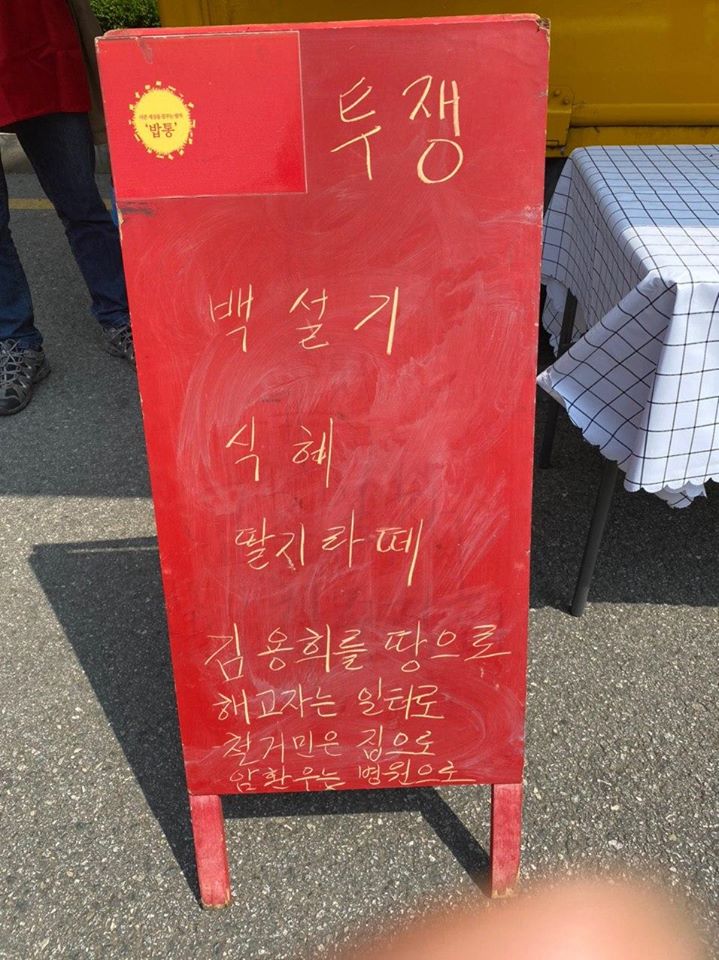 다른 세상을 꿈꾸는 밥차
'밥통'
투쟁
백설기
식혜
딸기라떼
김용희를 땅으로
해고자는 일터로
철거민은 집으로
암환우는 병원으로